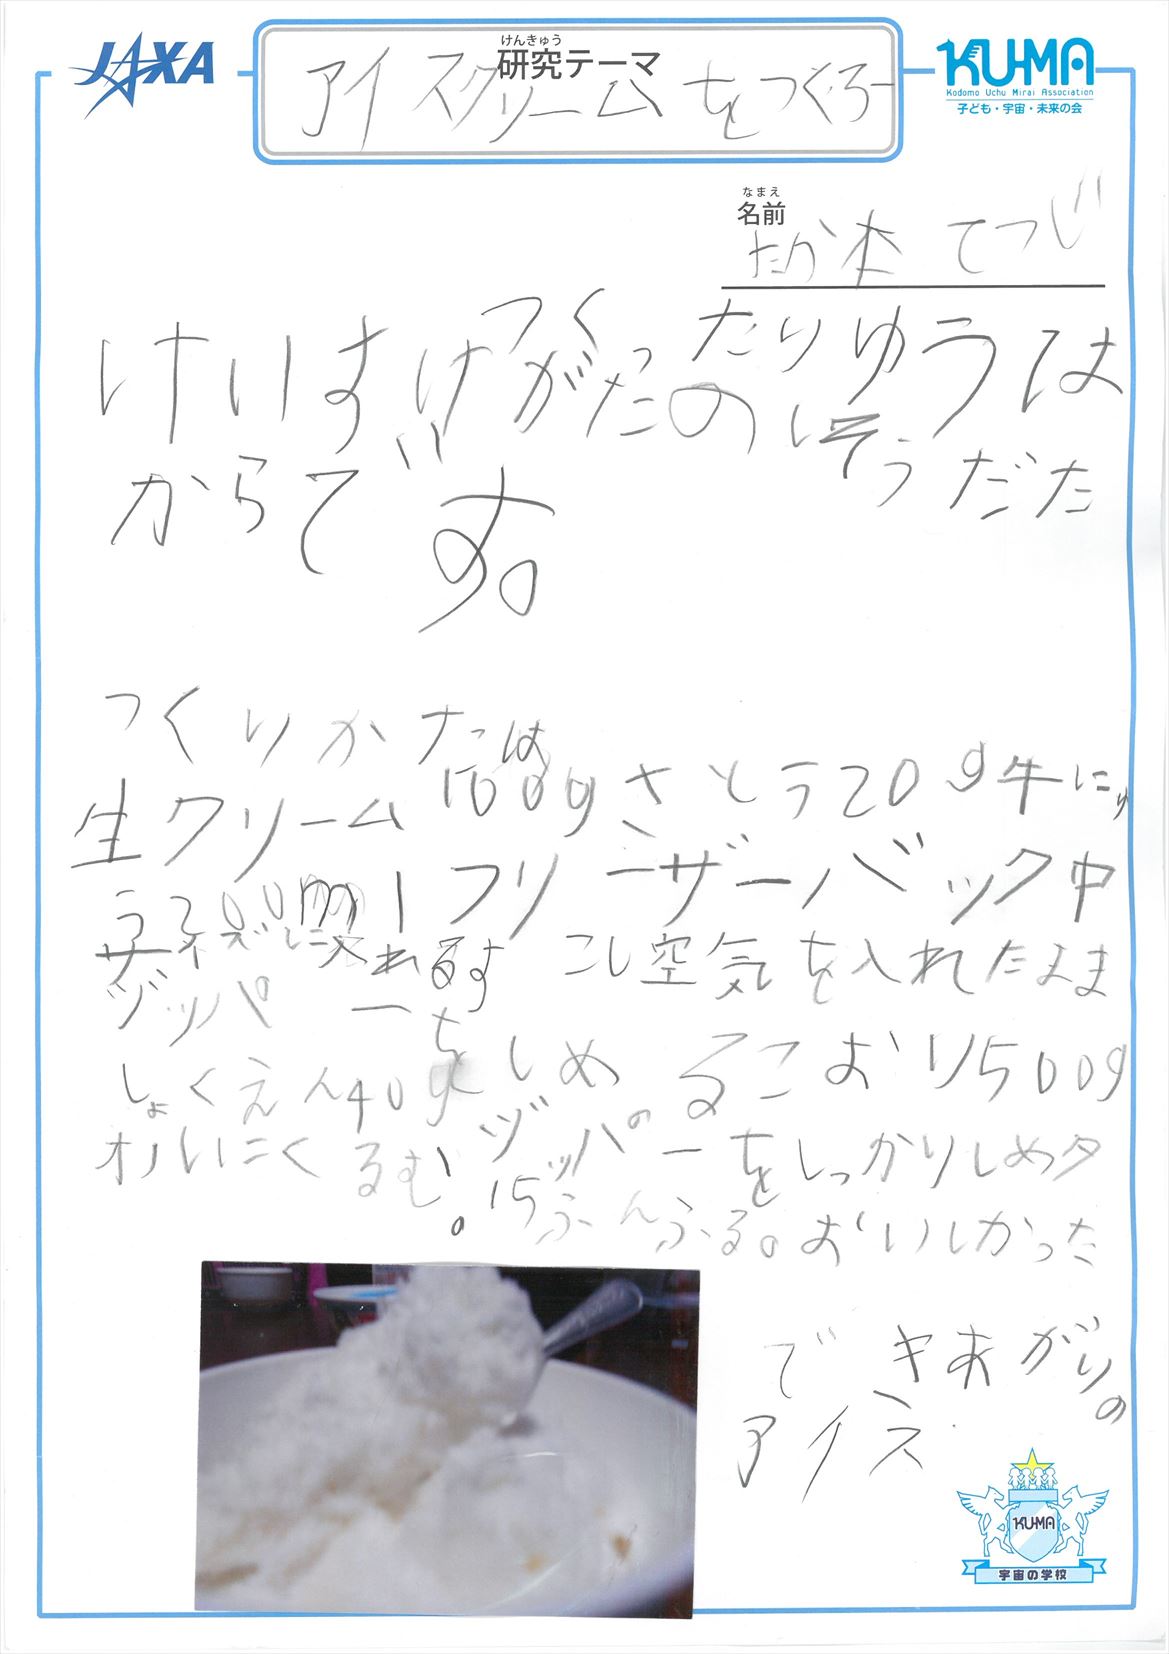 JAXA
けんきゅう
研究テーマ
アイスクリームをつくろー
KU-MA
Kodomo Uchu Mirai Association
子ども・宇宙・未来の会
なまえ
名前
たか本 てつじ
つくったりゆうは
けいすけがたのしそうだた
からです。
つくりかたは
生クリーム100gさとう20g牛にゅ
う200m フリーザーバック中
サイズに入れるすこし空気を入れたまま
ヅッパーをしめるこおり500g
しょくえん40g
ヅッパーをしっかりしめタ
オルにくるむ。15ふんふる。おいしかった
できあがりの
アイス
KU-MA
宇宙の学校